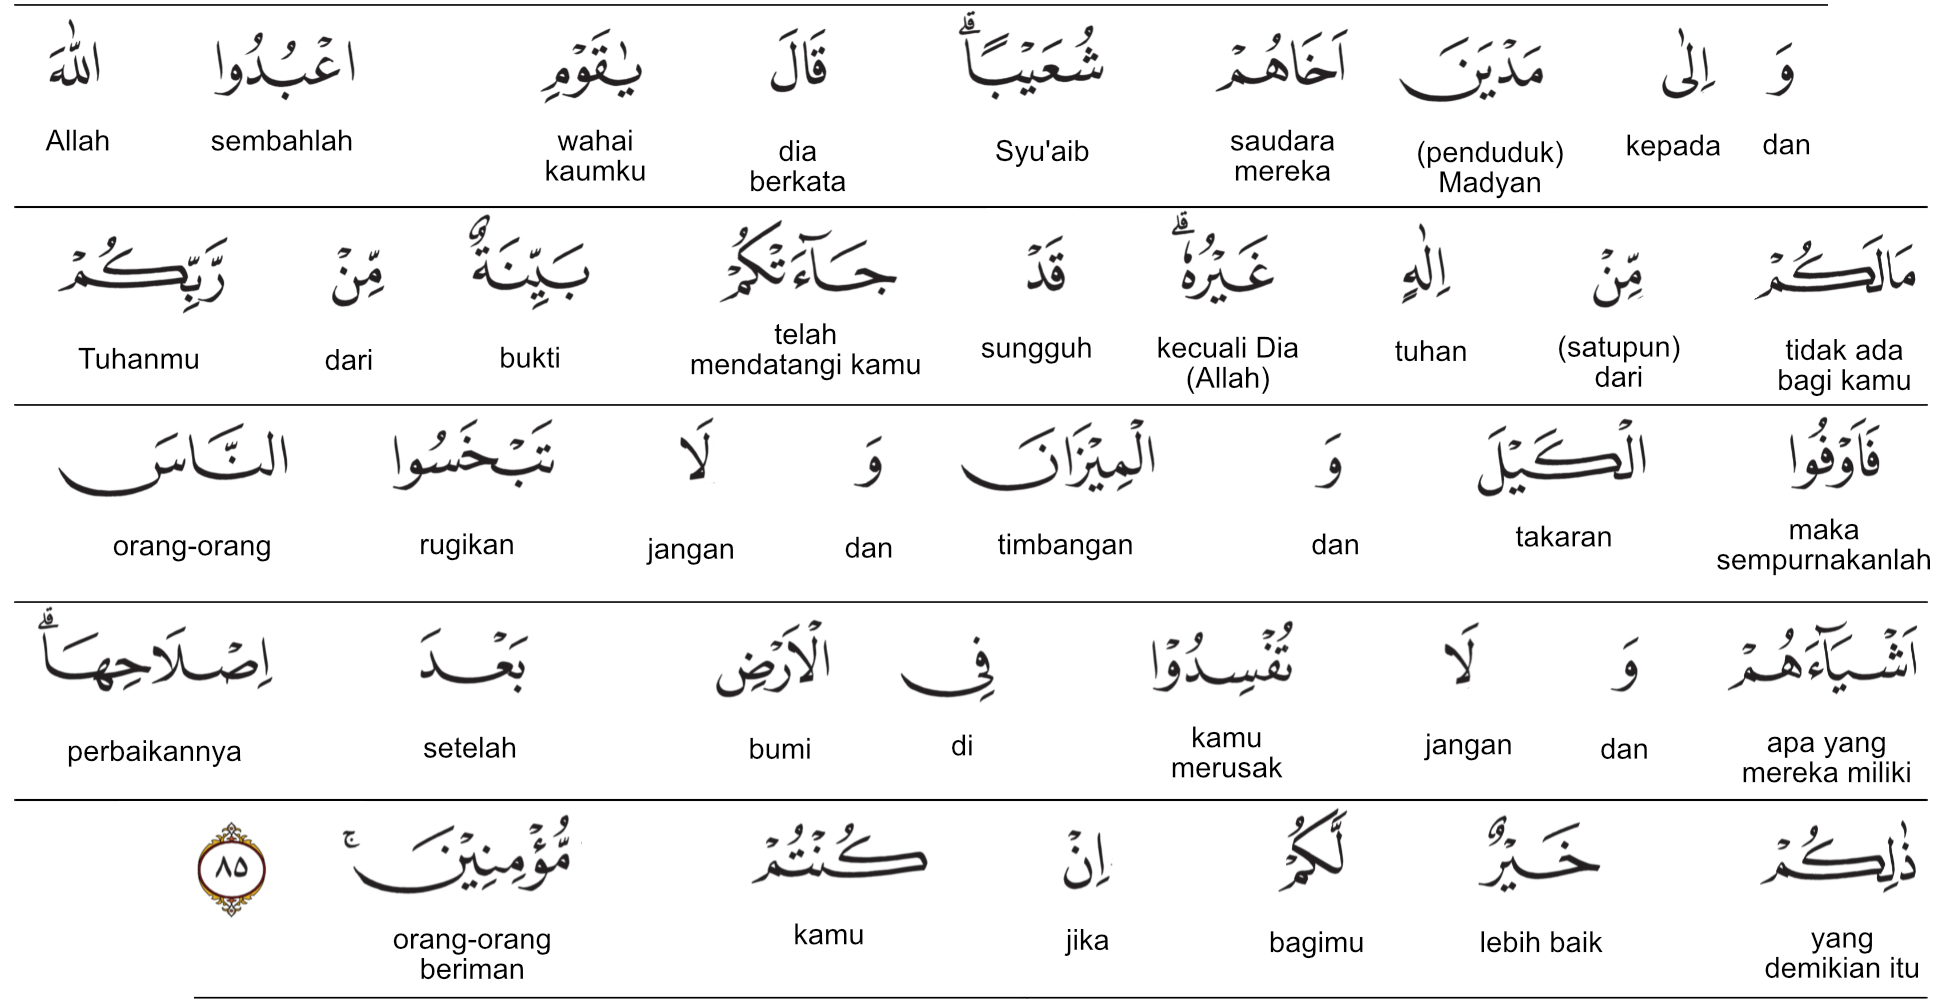 وَ اِلٰى مَدْيَنَ اَخَاهُمْ شُعَيْبًاۗ قَالَ يٰقَوْمِ اعْبُدُوا اللّٰهَ
dan kepada (penduduk) Madyan saudara mereka Syu'aib dia berkata wahai kaumku sembahlah Allah
مَالَكُمْ مِّنْ اِلٰهٍ غَيْرُهٗۗ قَدْ جَاۤءَتْكُمْ بَيِّنَةٌ مِّنْ رَّبِّكُمْ
tidak ada bagi kamu (satupun) dari tuhan kecuali Dia (Allah) sungguh telah mendatangi kamu bukti dari Tuhanmu
فَاَوْفُوا الْكَيْلَ وَ الْمِيْزَانَ وَ لَا تَبْخَسُوا النَّاسَ
maka sempurnakanlah takaran dan timbangan dan jangan rugikan orang-orang
اَشْيَاۤءَهُمْ وَ لَا تُفْسِدُوْا فِى الْاَرْضِ بَعْدَ اِصْلَاحِهَاۗ
apa yang mereka miliki dan jangan kamu merusak di bumi setelah perbaikannya
ذٰلِكُمْ خَيْرٌ لَّكُمْ اِنْ كُنْتُمْ مُّؤْمِنِيْنَۚ ٨٥
yang demikian itu lebih baik bagimu jika kamu orang-orang beriman